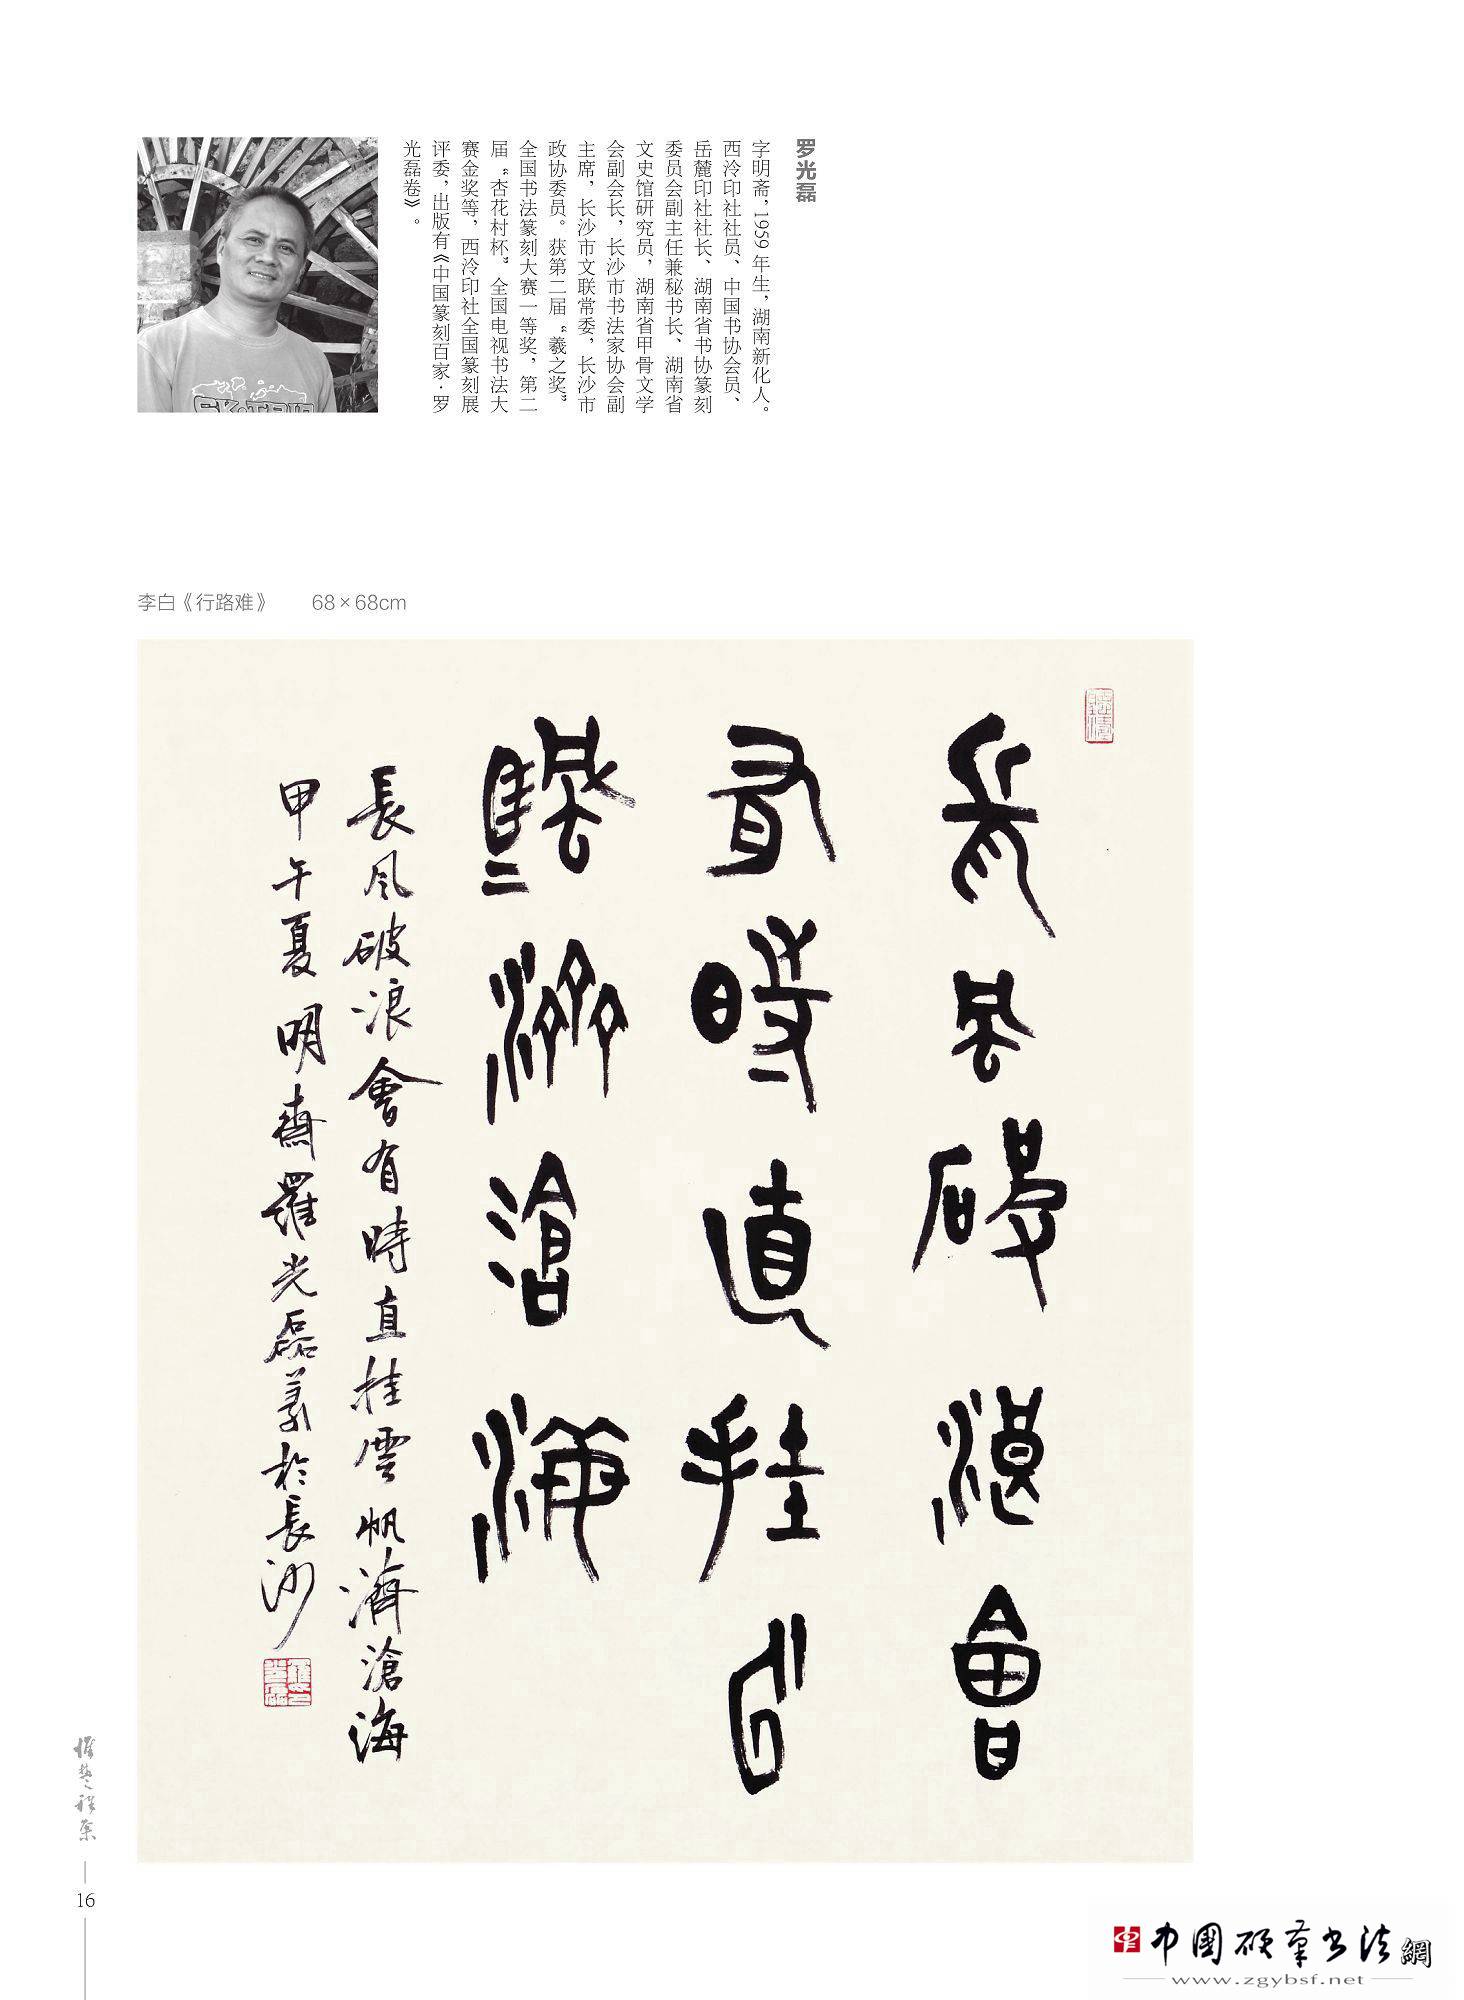 罗光磊
字明斋，1959年生，湖南新化人。
西泠印社社员、中国书协会员、
岳麓印社社长、湖南省书协篆刻
委员会副主任兼秘书长、湖南省
文史馆研究员，湖南省甲骨文学
会副会长，长沙市书法家协会副
主席，长沙市文联常委，长沙市
政协委员。获第二届“羲之奖”
全国书法篆刻大赛一等奖，第二
届“杏花村杯”全国电视书法大
赛金奖等，西泠印社全国篆刻展
评委，出版有《中国篆刻百家·罗
光磊卷》。
李白《行路难》 68×68cm
長風破浪會
有時直挂雲
帆濟滄海
長风破浪會有時直挂雲帆濟滄海
甲午夏明齋羅光磊篆於長沙
16
中国硬笔书法網
www.zgybsf.net